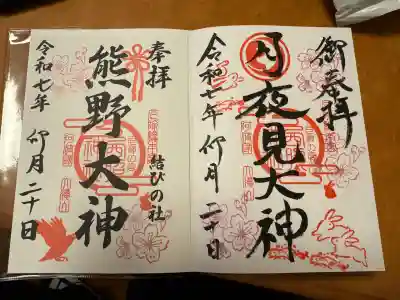 御奉拝
月夜見大神
令和七年 卯月二十日
奉拝
結びの社
熊野大神
令和七年 卯月二十日